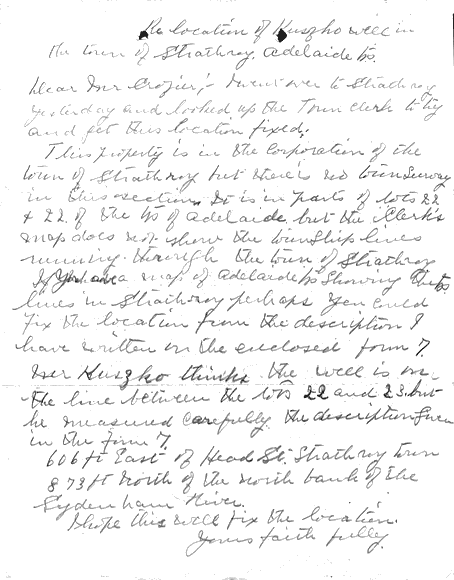 Re location of Kuszko well in
the town of Strathroy, Adelaide Tp.
Dear Mr Crozier; - I went over to Strathroy
yesterday and looked up the Town Clerk to try
and get this location fixed.
This property is in the Corporation of the
town of Strathroy but there is no town survey
in this section. It is in parts of lots 22
& 22 of the Tp of Adelaide, but the Clerk's
map does not show the township lines
running through the town of Strathroy
If you have a map of Adelaide Tp showing the
lines in Strathroy perhaps you could
fix the location from the description I
have written on the enclosed form 7.
Mr Kuszko thinks the well is on
the line between the lots 22 and 23 but
he measured carefully the description given
in the form 7.
606 ft East of Head St. Strathroy town
873 ft North of the North bank of the
Sydenham River.
I hope this will fix the location.
Yours faithfully